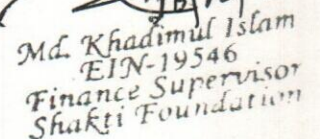 Md. Khadimul Islam
EIN-19546
Finance Supervisor
Shakti Foundation